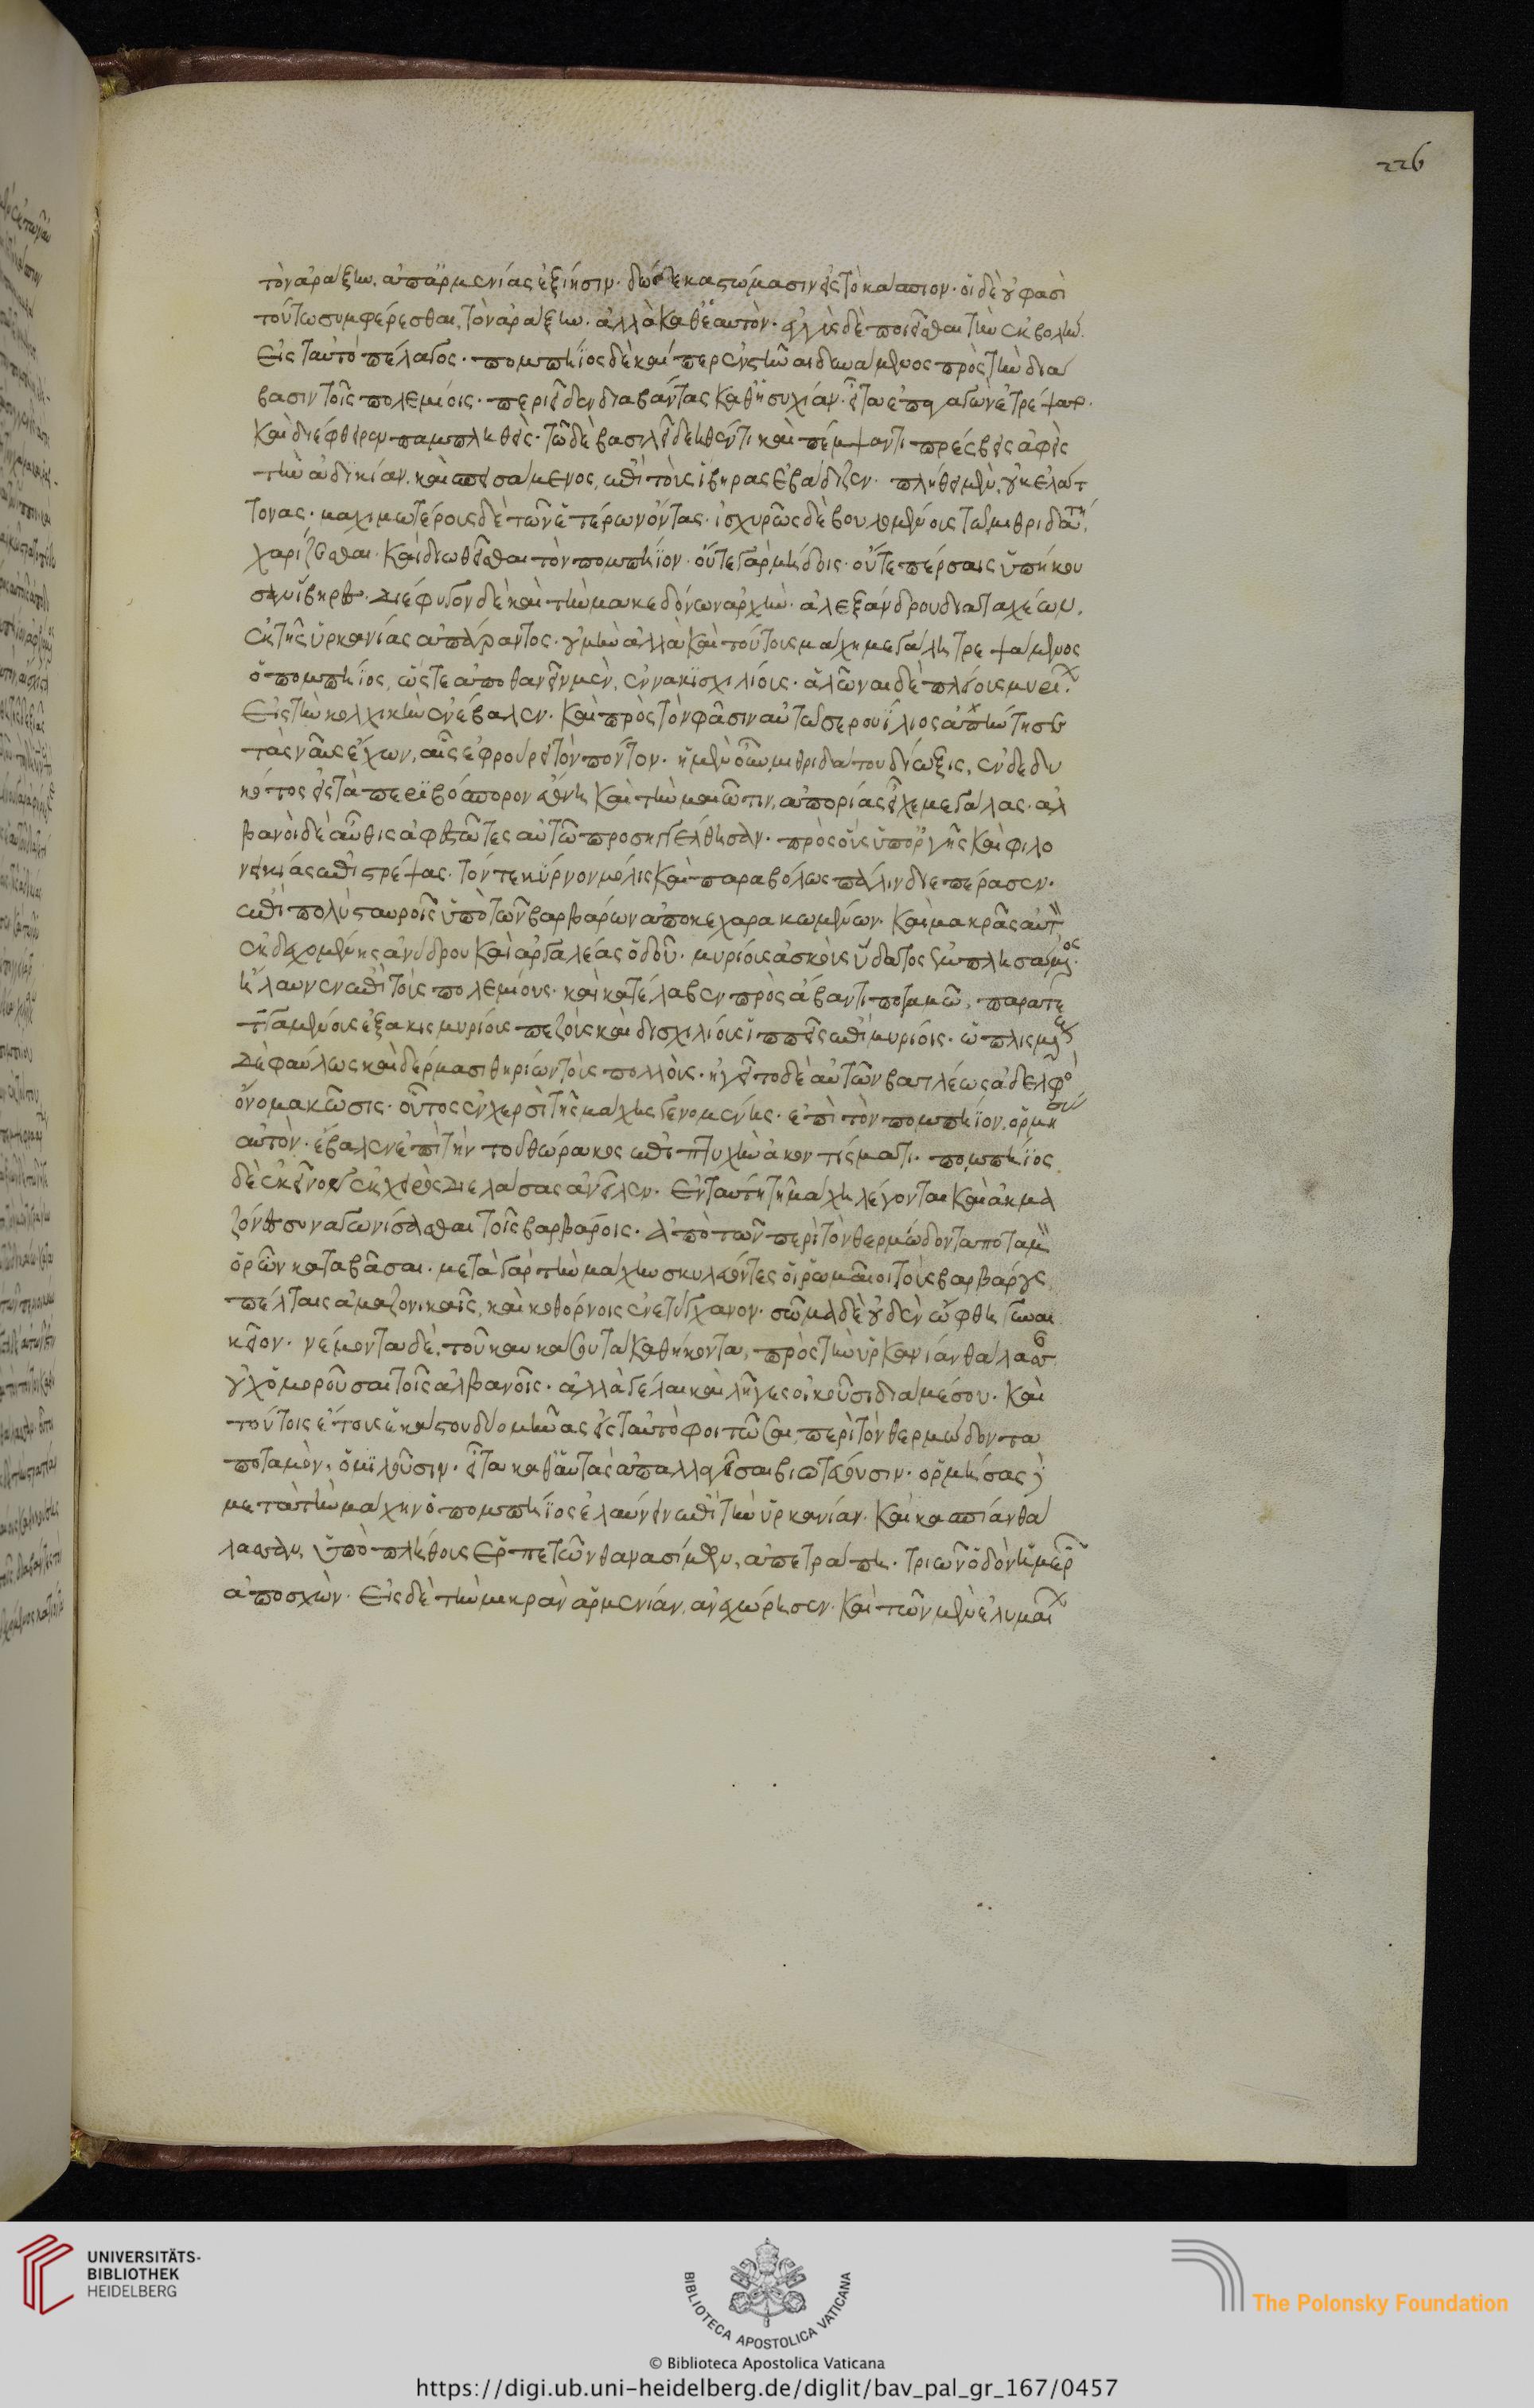 226
τὸν ἀράξην, ἀπ' ἀρμενίας ἐξίησιν δώδεκα στόμασιν εἰς τὸ κάσπιον· οἱ δὲ οὔ φασὶ
τούτω συμφέρεσθαι, τὸν ἀράξην. ἀλλὰ καθ' ἑαυτὸν· ἐγγὺς δὲ ποιεῖσθαι τὴν ἐκβολὴν
εἰς ταὐτὸ πέλαγος· πομπήϊος δὲ καίπερ ἐνστῆναι δυνάμενος πρὸς τὴν διά
βασιν τοῖς πολεμίοις· περιεῖδεν διαβάντας καθ' ἡσυχίαν· εἶτα ἐπαγαγὼν ἐτρέψατο·
καὶ διέφθειρεν παμπληθεῖς· τῶ δὲ βασιλεῖ δεηθέντι καὶ πέμψαντι πρέσβεις ἀφεὶς
τὴν ἀδικίαν. καὶ σπεισάμενος, ἐπὶ τοὺς ἴβηρας ἐβάδιζεν· πλήθει μὲν, οὐκ ἐλάτ
τονας· μαχιμωτέρους δὲ τῶν ἑτέρων ὄντας· ἰσχυρῶς δὲ βουλομένους τῶ μιθριδάτη
χαρίζεσθαι· καὶ διωθεῖσθαι τὸν πομπήϊον· οὔτε γὰρ μήδοις· οὔτε πέρσαις ὑπήκου
σαν ἴβηρες· διέφυγον δὲ καὶ τὴν μακεδόνων ἀρχὴν· ἀλεξάνδρου διαταχέων,
ἐκ τῆς ὑρκανίας ἀπάραντος· οὐ μὴν ἀλλὰ καὶ τούτους μάχη μεγάλη τρεψάμενος
ὁ πομπήϊος, ὥστε ἀποθανεῖν μὲν, ἐννακισχιλίους· ἁλῶναι δὲ πλείους μυρί
εἰς τὴν κολχικὴν ἐνέβαλεν· καὶ πρὸς τὸν φᾶσιν αὐτῶ σερουΐλιος ἀπήντησεν
τὰς ναῦς ἔχων, αἷς ἐφρούρει τὸν πόντον· ἡ μὲν οὖν μιθριδάτου δίωξις, ἐνδεδυ
κότος εἰς τὰ περὶ βόσπορον ἔθνη καὶ τὴν μαιῶτιν, ἀπορίας εἶχε μεγάλας· ἀλ
βανοὶ δὲ αὖθις ἀφεστῶτες αὐτῶ προσηγγέλθησαν· πρὸς οὓς ὑπ' ὀργῆς καὶ φιλο
νεικίας ἐπιστρέψας· τόν τε κύρνον μόλις καὶ παραβόλως πάλιν διεπέρασεν·
ἐπὶ πολὺ σταυροῖς ὑπὸ τῶν βαρβάρων ἀποκεχαρακωμένον· καὶ μακρᾶς αὐτ
ἐκδεχομένης ἀνύδρου καὶ ἀργαλέας ὁδοῦ· μυρίους ἀσκοὺς ὕδατος ἐμπλησάμενος
ἤλαυνεν ἐπὶ τοὺς πολεμίους· καὶ κατέλαβεν πρὸς ἄβαντι ποταμῶ, παρατε
ταγμένους ἑξακισμυρίους πεζοὺς καὶ δισχιλίους ἱππεῖς ἐπὶ μυρίοις· ὡπλισμένους
δὲ φαύλως καὶ δέρμασι θηρίων τοὺς πολλοὺς· ἡγεῖτο δὲ αὐτῶν βασιλέως ἀδελφὸς
ὄνομα κῶσις· οὗτος ἐν χερσὶ τῆς μάχης γενομένης· ἐπὶ τὸν πομπήϊον, ὁρμή
σας αὐτὸν· ἔβαλεν ἐπὶ τὴν τοῦ θώρακος ἐπιπτυχὴν ἀκοντίσματι· πομπήϊος
δὲ ἐκεῖνον ἐκ χειρὸς διελάσας ἀνεῖλεν· ἐν ταύτη τῆ μάχη λέγονται καὶ ἀμα
ζόνες συναγωνίσασθαι τοῖς βαρβάροις· ἀπὸ τῶν περὶ τὸν θερμώδοντα ποταμὸν
ὀρῶν καταβᾶσαι· μετὰ γὰρ τὴν μάχην σκυλεύοντες οἱ ῥωμαῖοι τοὺς βαρβάρους,
πέλταις ἀμαζονικαῖς, καὶ κοθόρνοις ἐνετύγχανον· σῶμα δὲ οὐδὲν ὤφθη γυναι
κεῖον· νέμονται δὲ, τοῦ καυκάσου τὰ καθήκοντα, πρὸς τὴν ὑρκανίαν θάλασσ
οὐχ ὁμοροῦσαι τοῖς ἀλβανοῖς· ἀλλὰ γέλαι καὶ λῆγες οἰκοῦσι διαμέσου· καὶ
τούτοις ἔτους ἑκάστου δύο μῆνας εἰς ταὐτὸ φοιτῶσαι, περὶ τὸν θερμώδοντα
ποταμὸν, ὁμιλοῦσιν· εἶτα καθ' αὑτὰς ἀπαλλαγεῖσαι βιοτεύουσιν· ὁρμήσας δὲ
μετὰ τὴν μάχην ὁ πομπήϊος ἐλαύνειν ἐπὶ τὴν ὑρκανίαν· καὶ κασπίαν θά
λασσαν, ὑπὸ πλήθους ἑρπετῶν θανασίμων, ἀπετράπη· τριῶν ὁδὸν ἡμερῶν
ἀποσχὼν· εἰς δὲ τὴν μικρὰν ἀρμενίαν, ἀνεχώρησεν· καὶ τῶν μὲν ἐλυμαί
UNIVERSITÄTS-
BIBLIOTHEK
HEIDELBERG
BIBLIOTECA APOSTOLICA VATICANA
The Polonsky Foundation
© Biblioteca Apostolica Vaticana
https://digi.ub.uni-heidelberg.de/diglit/bav_pal_gr_167/0457